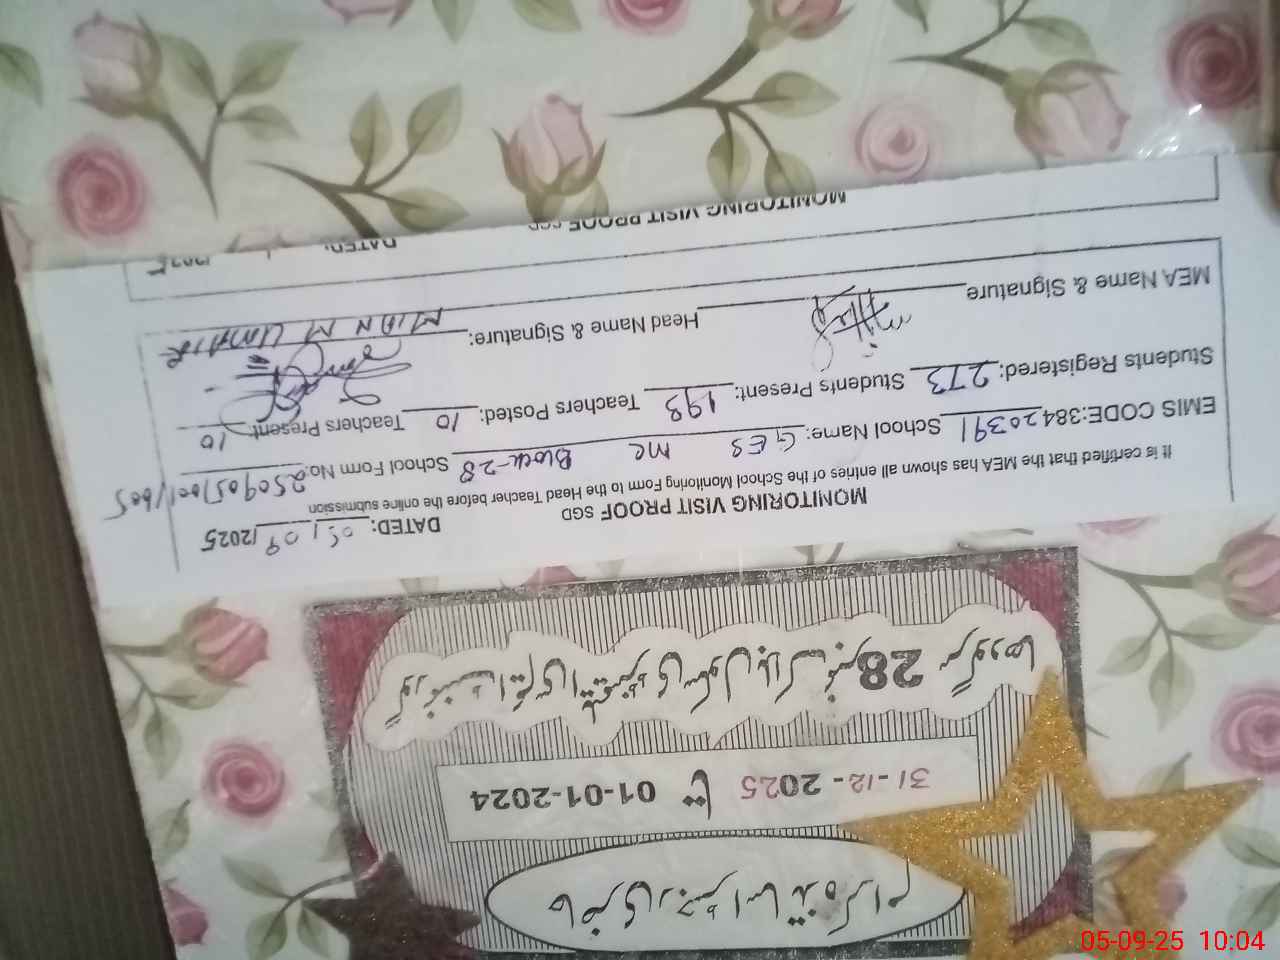 حاضری رجسٹر اساتذہ کرام
01-01-2024 تا 31-12-2025
گورنمنٹ ایلیمنٹری سکول بلاک نمبر 28 سرگودھا
MONITORING VISIT PROOF SGD DATED: 05/09/2025
It is certified that the MEA has shown all entries of the School Monitoring Form to the Head Teacher before the online submission
EMIS CODE:38420391 School Name: GES MC Block-28 School Form No.
Students Registered: 273 Students Present: 193 Teachers Posted: 10 Teachers Present: 10
MEA Name & Signature Head Name & Signature: MIAN M UMAIR
MONITORING VISIT PROOF SGD DATED:
05-09-25 10:04